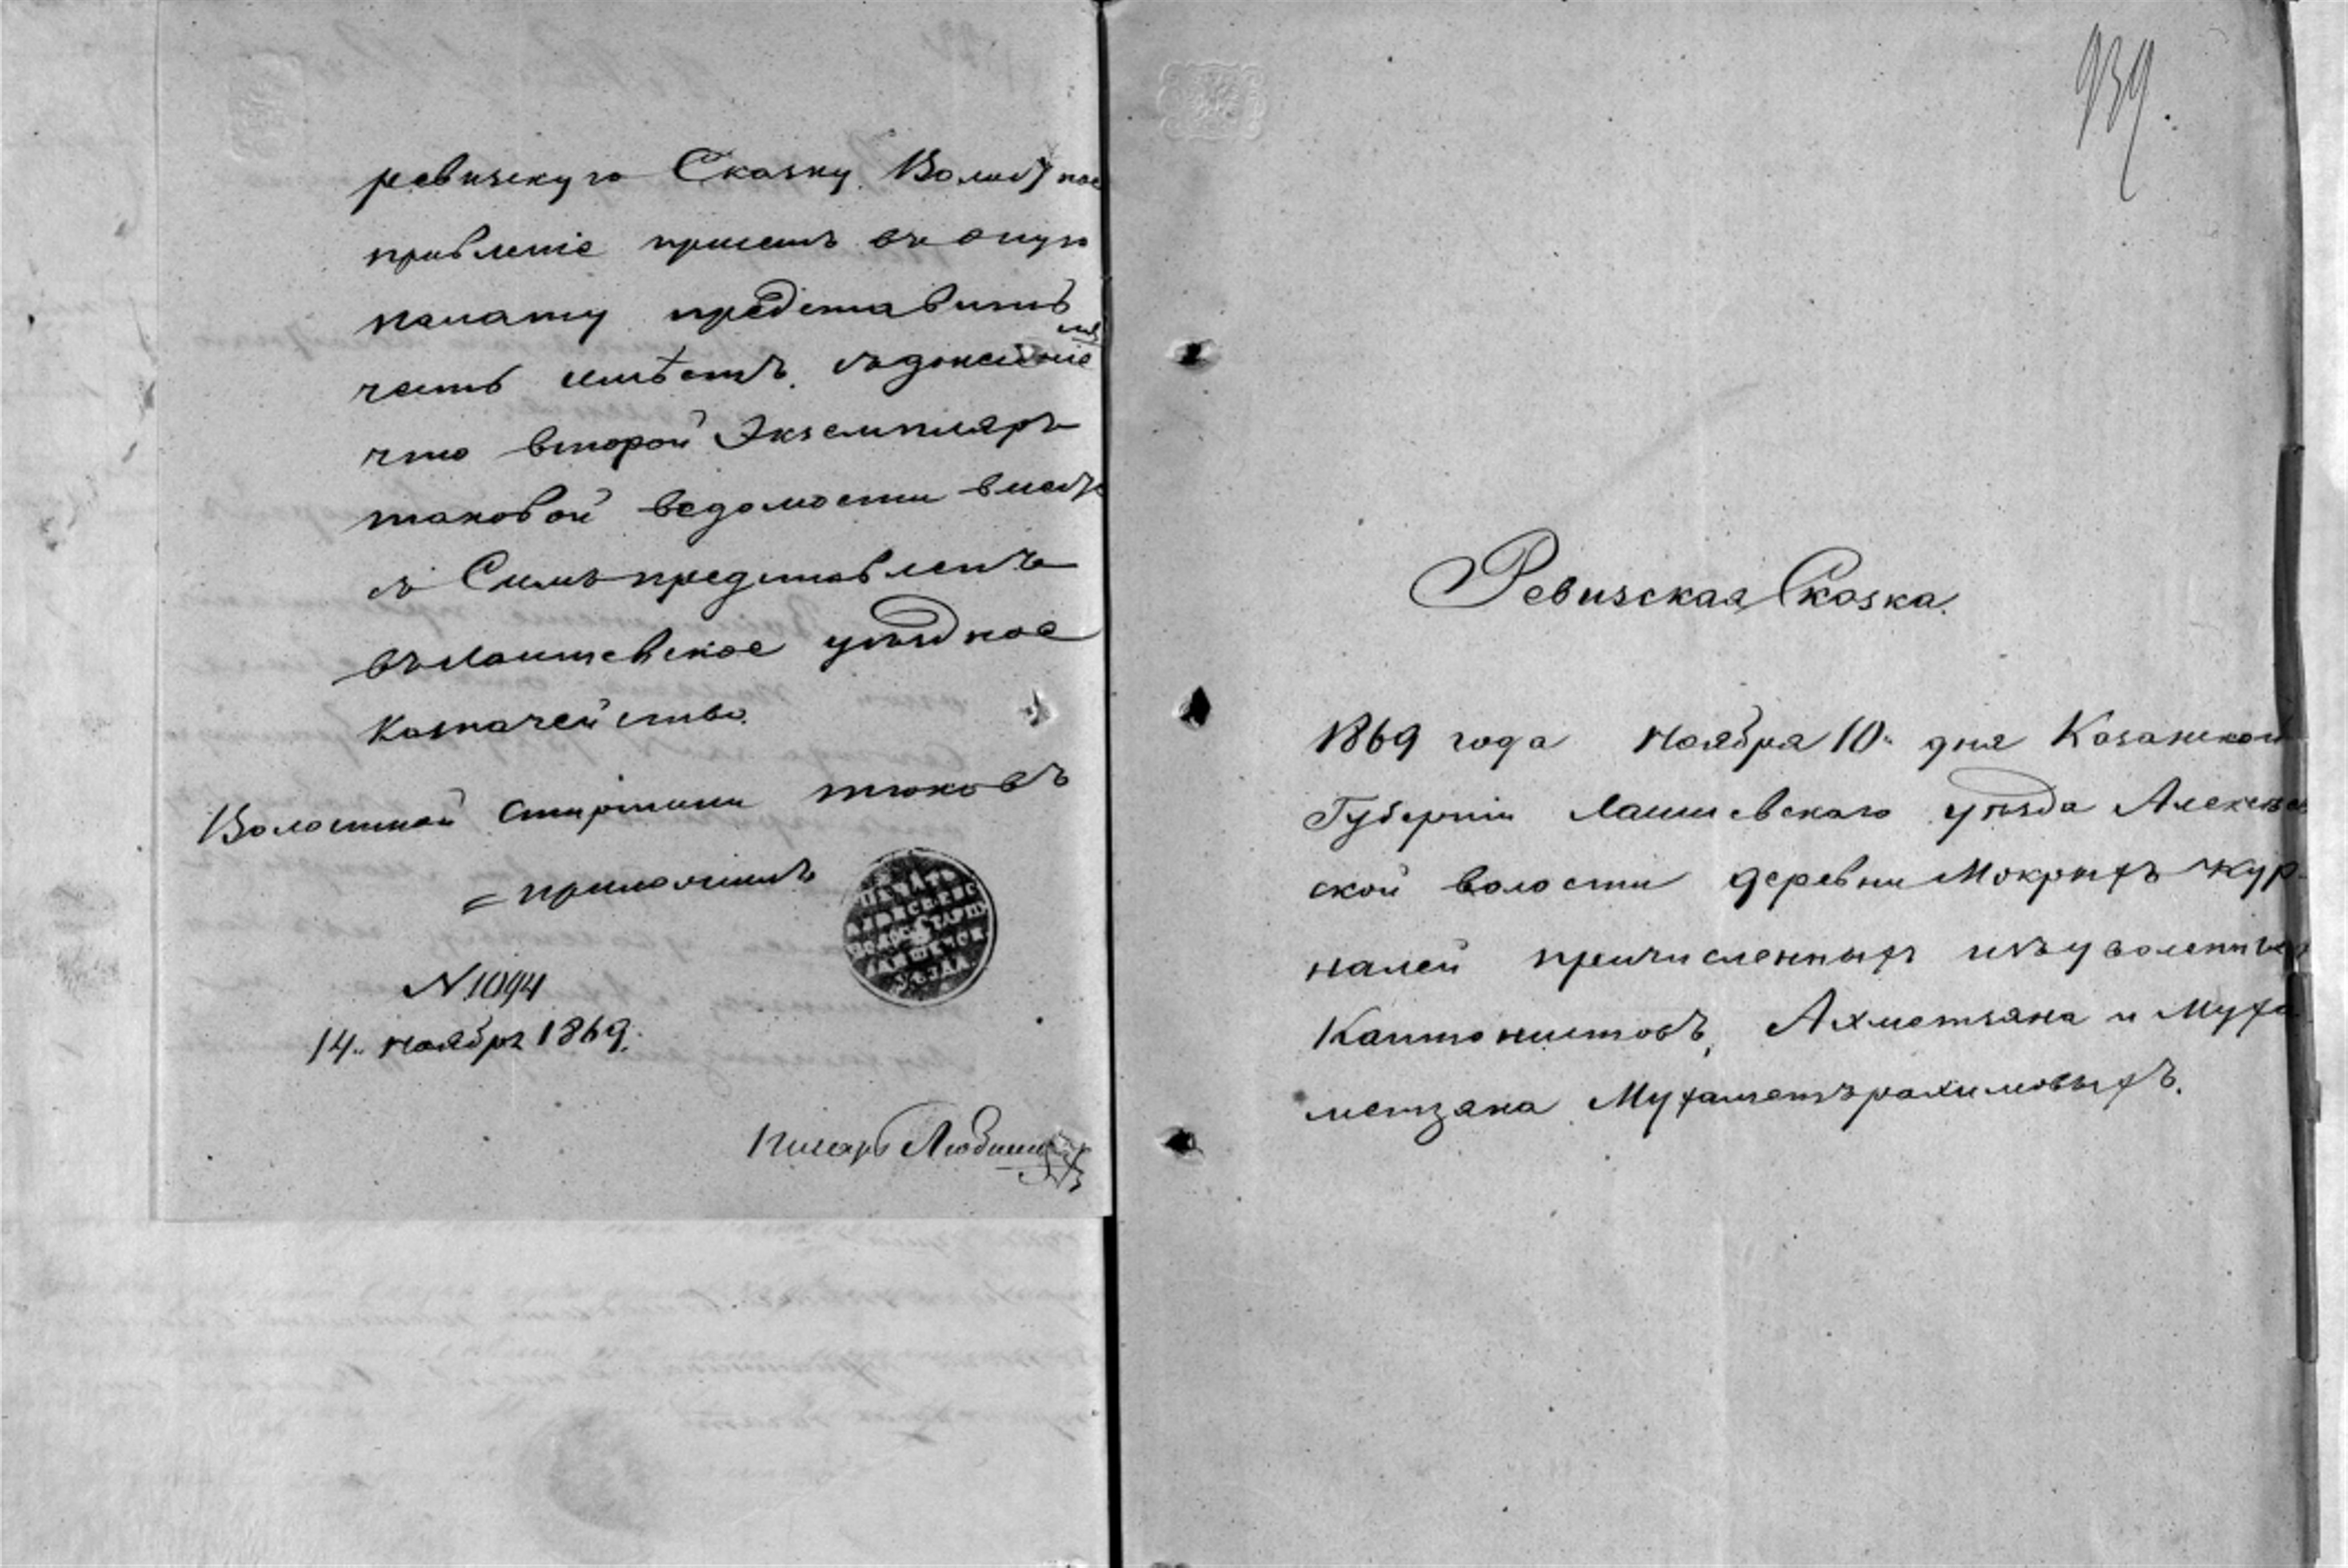 ревизскую Сказку. Волост. пое
правленіе при семъ въ оную
палату представить
честь имѣетъ, съ донесеніе
мъ
что второй Экземпляръ
таковой ведомости вместе
съ Симъ представленъ
въ Лаишевское уѣздное
Казначейство.
Волостной старшина
= приложилъ
ПЕЧАТЬ
АЛЕКСЕЕВС
ВОЛОС. СТАРШ
ЛАИШЕВСК
УѢЗДА
N 1094
14. ноября 1869.
Писарь
939.
Ревизская Сказка.
1869 года Ноября 10. дня Казанской
Губерніи Лаишевскаго уѣзда Алексѣев
ской волости деревни Мокрыхъ Кур
налей причисленныхъ изъ уволенныхъ
Кантонистовъ, Ахметзяна и Муха
метзяна Мухаметърахимовыхъ.